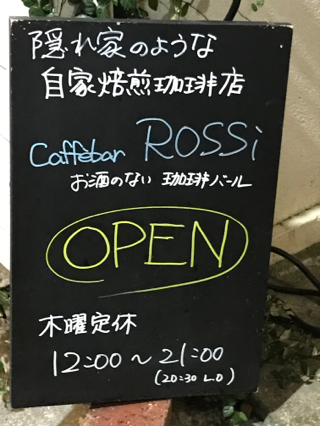 隠れ家のような
自家焙煎珈琲店
Caffebar ROSSi
お酒のない 珈琲バール
OPEN
木曜定休
12:00～21:00
(20:30 L.O)